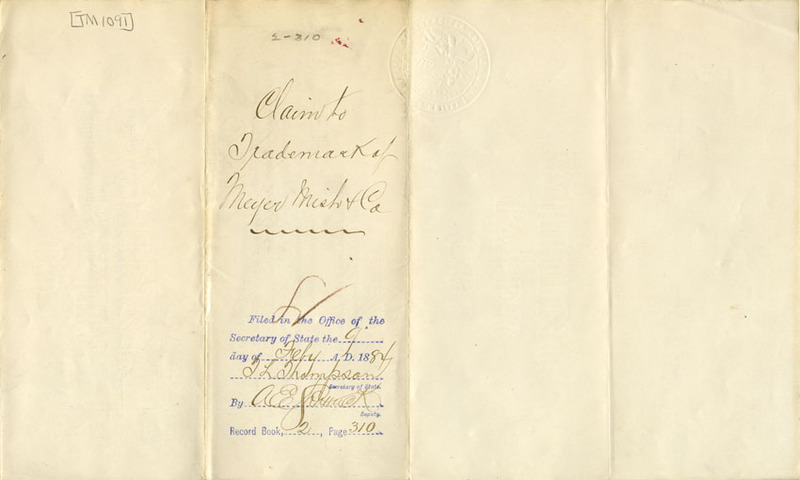 [TM1091]
2-310
Claim to
Trademark of
Meyer Mish & Co
Filed in the Office of the
Secretary of State the 9
day of Feby A.D. 1884
T L Thompson
Secretary of State.
By A E
Deputy.
Record Book, 2, Page 310